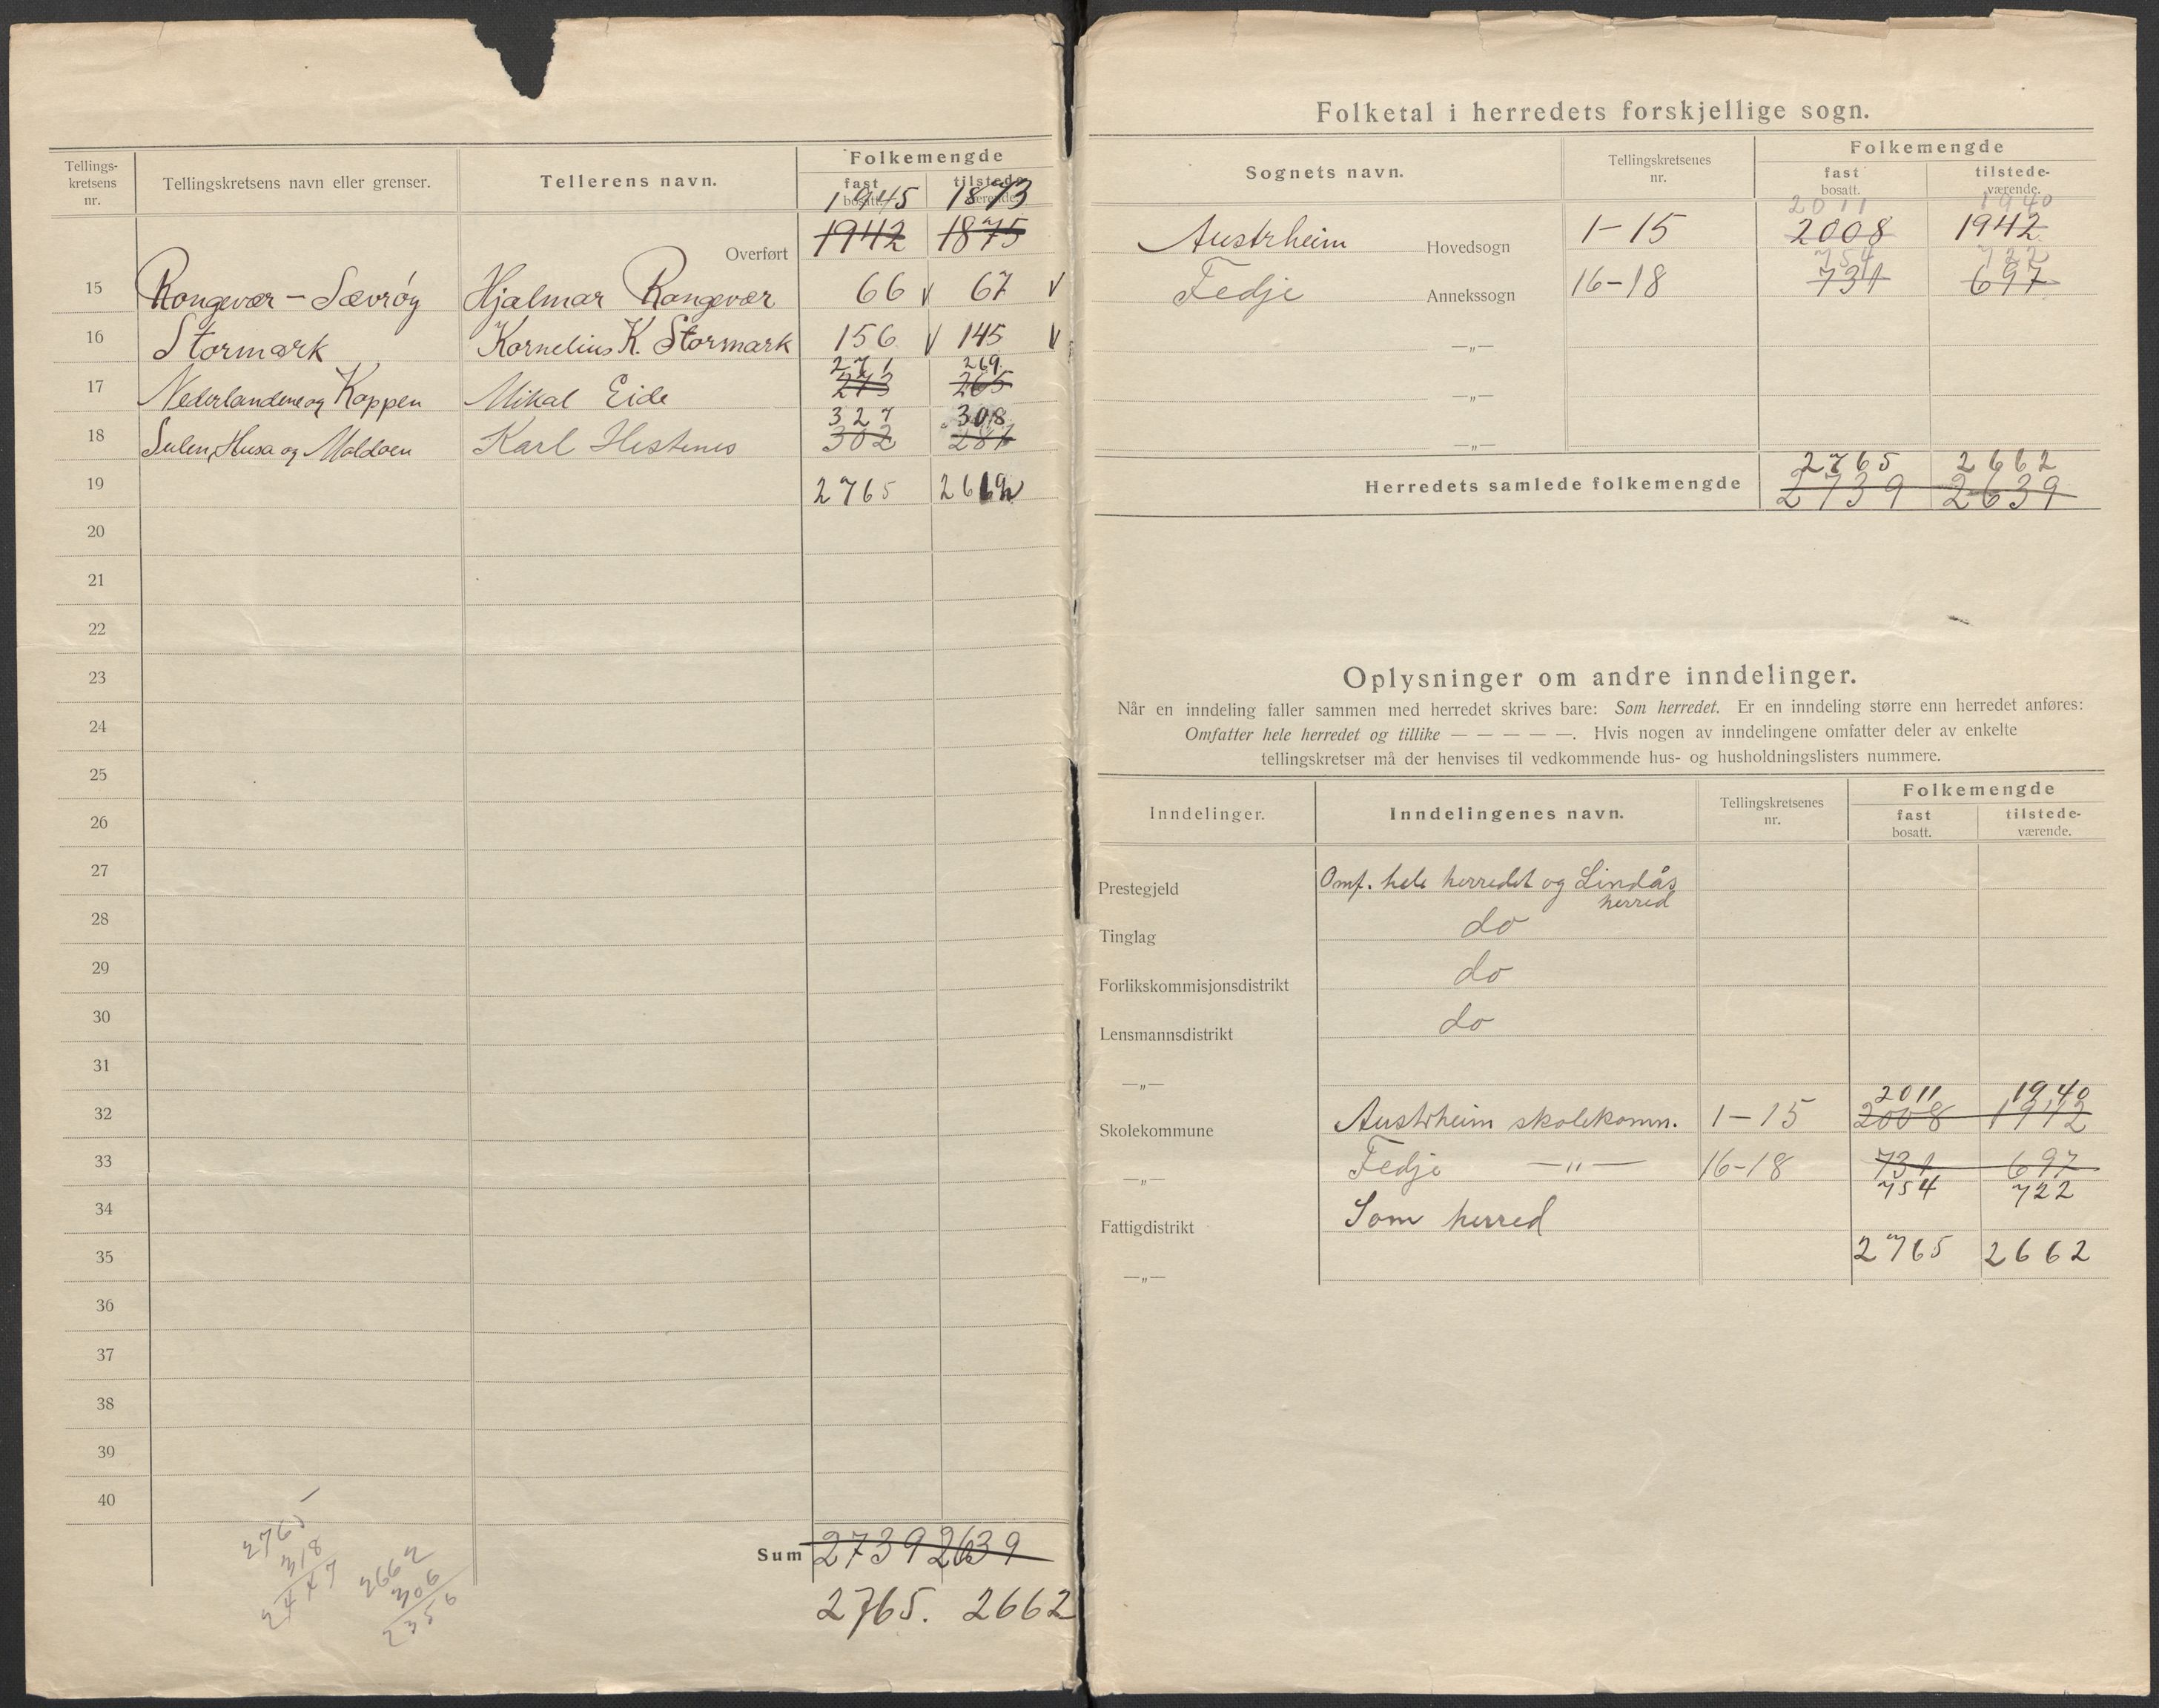 Tellings-
kretsens
nr.
Tellingskretsens navn eller grenser.
Tellerens navn.
Folkemengde
fast
bosatt.
tilstede-
værende.
1945 1873
Overført 1942 1875
15 Rongevær - Sævrøy Hjalmar Rongevær 66 v 67 v
16 Stormark Kornelius K. Stormark 156 v 145 v
271 269
17 Nederlandene og Koppen Mikal Eide 273 265
327 308
18 Sulen, Husa og Moldøen Karl Hestenes 302 287
19 2765 2662
20
21
22
23
24
25
26
27
28
29
30
31
32
33
34
35
36
37
38
39
40
Sum 2739 2639
2765. 2662
2765
318
2447
2662
306
2356
Folketal i herredets forskjellige sogn.
Sognets navn.
Tellingskretsenes
nr.
Folkemengde
fast
bosatt.
tilstede-
værende.
2011 1940
Austrheim Hovedsogn 1-15 2008 1942
754 722
Fedje Annekssogn 16-18 731 697
—„—
—„—
—„—
2765 2662
Herredets samlede folkemengde 2739 2639
Oplysninger om andre inndelinger.
Når en inndeling faller sammen med herredet skrives bare: Som herredet. Er en inndeling større enn herredet anføres:
Omfatter hele herredet og tillike — — — — —. Hvis nogen av inndelingene omfatter deler av enkelte
tellingskretser må der henvises til vedkommende hus- og husholdningslisters nummere.
Inndelinger.
Inndelingenes navn.
Tellingskretsenes
nr.
Folkemengde
fast
bosatt.
tilstede-
værende.
Prestegjeld Omf. hele herredet og Lindås
herred
Tinglag do
Forlikskommisjonsdistrikt do
Lensmannsdistrikt do
—„—
2011 1940
Skolekommune Austrheim skolekomm. 1-15 2008 1942
—„— Fedje —„— 16-18 731 697
754 722
Fattigdistrikt Som herred
—„— 2765 2662